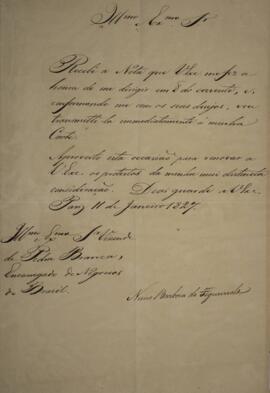 Illmo Exmo Sr
Recebi a Nota que V Exc me fez a
honra de me dirigir em 8 do corrente, e,
conformando me com os seus desejos, vou
transmittil-a immediatamente á minha
Corte.
Aproveito esta occasião para renovar a
V Exc. os protestos da minha mui distincta
consideração. Deos guarde a V Exc
Pariz 11 de Janeiro 1827.
Illmo Exmo Sr Visconde
de Pedra Branca,
Encarregado de Negocios
do Brasil.
Nuno Barbosa de Figueiredo